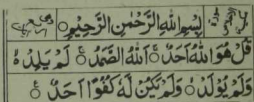 بِسْمِ اللهِ الرَّحْمٰنِ الرَّحِيْمِ
قُلْ هُوَ اللهُ اَحَدٌ اَللهُ الصَّمَدُ لَمْ يَلِدْ ەۙ
وَلَمْ يُوْلَدْ وَلَمْ يَكُنْ لَّهٗ كُفُوًا اَحَدٌ